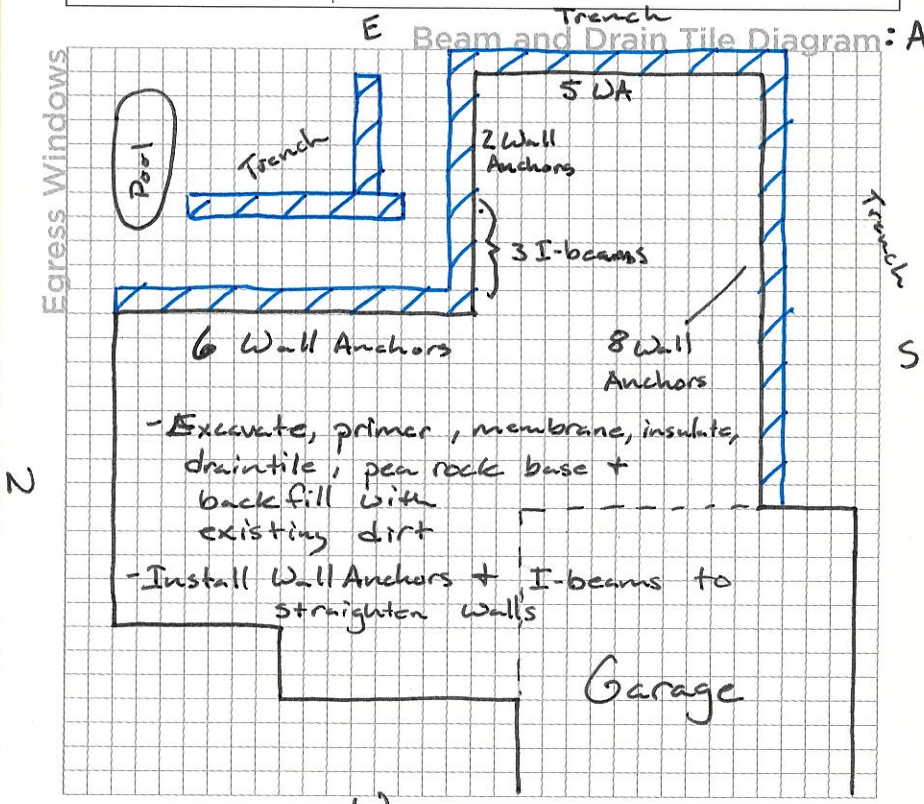 Trench
E
Beam and Drain Tile Diagram: A
Egress Windows
5 WA
Pool
Trench
2 Wall
Anchors
Trench
3 I-beams
6 Wall Anchors
8 Wall
Anchors
S
-Excavate, primer, membrane, insulate,
draintile, pea rock base +
backfill with
existing dirt
N
-Install Wall Anchors + I-beams to
straighten walls
Garage